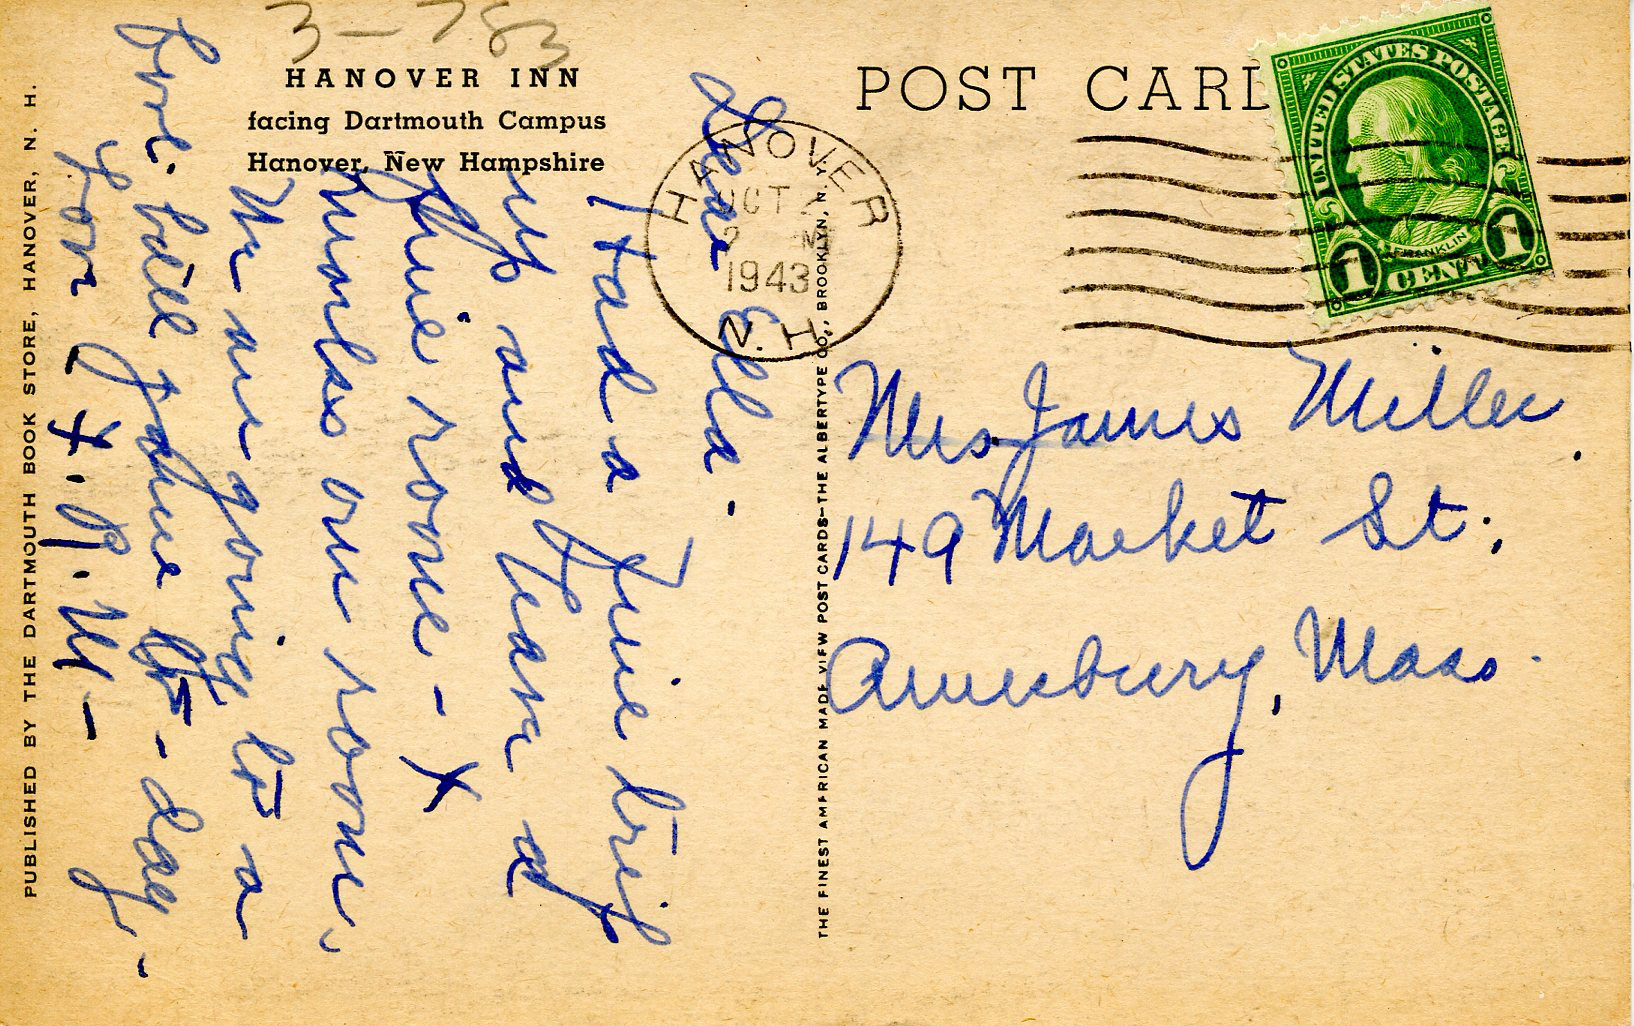 3-783
HANOVER INN
facing Dartmouth Campus
Hanover, New Hampshire
Dear Ella.
Had a fine trip
up and have a
fine room - X
marks our room.
We are going to a
foot-ball game to-day -
Love L.R.M -
PUBLISHED BY THE DARTMOUTH BOOK STORE, HANOVER, N. H.
THE FINEST AMERICAN MADE VIEW POST CARDS—THE ALBERTYPE CO., BROOKLYN, N.Y.
POST CARD
HANOVER
OCT
2 M
1943
N.H.
UNITED STATES POSTAGE
FRANKLIN
1 CENT 1
Mrs James Miller.
149 Market St.
Amesbury, Mass.